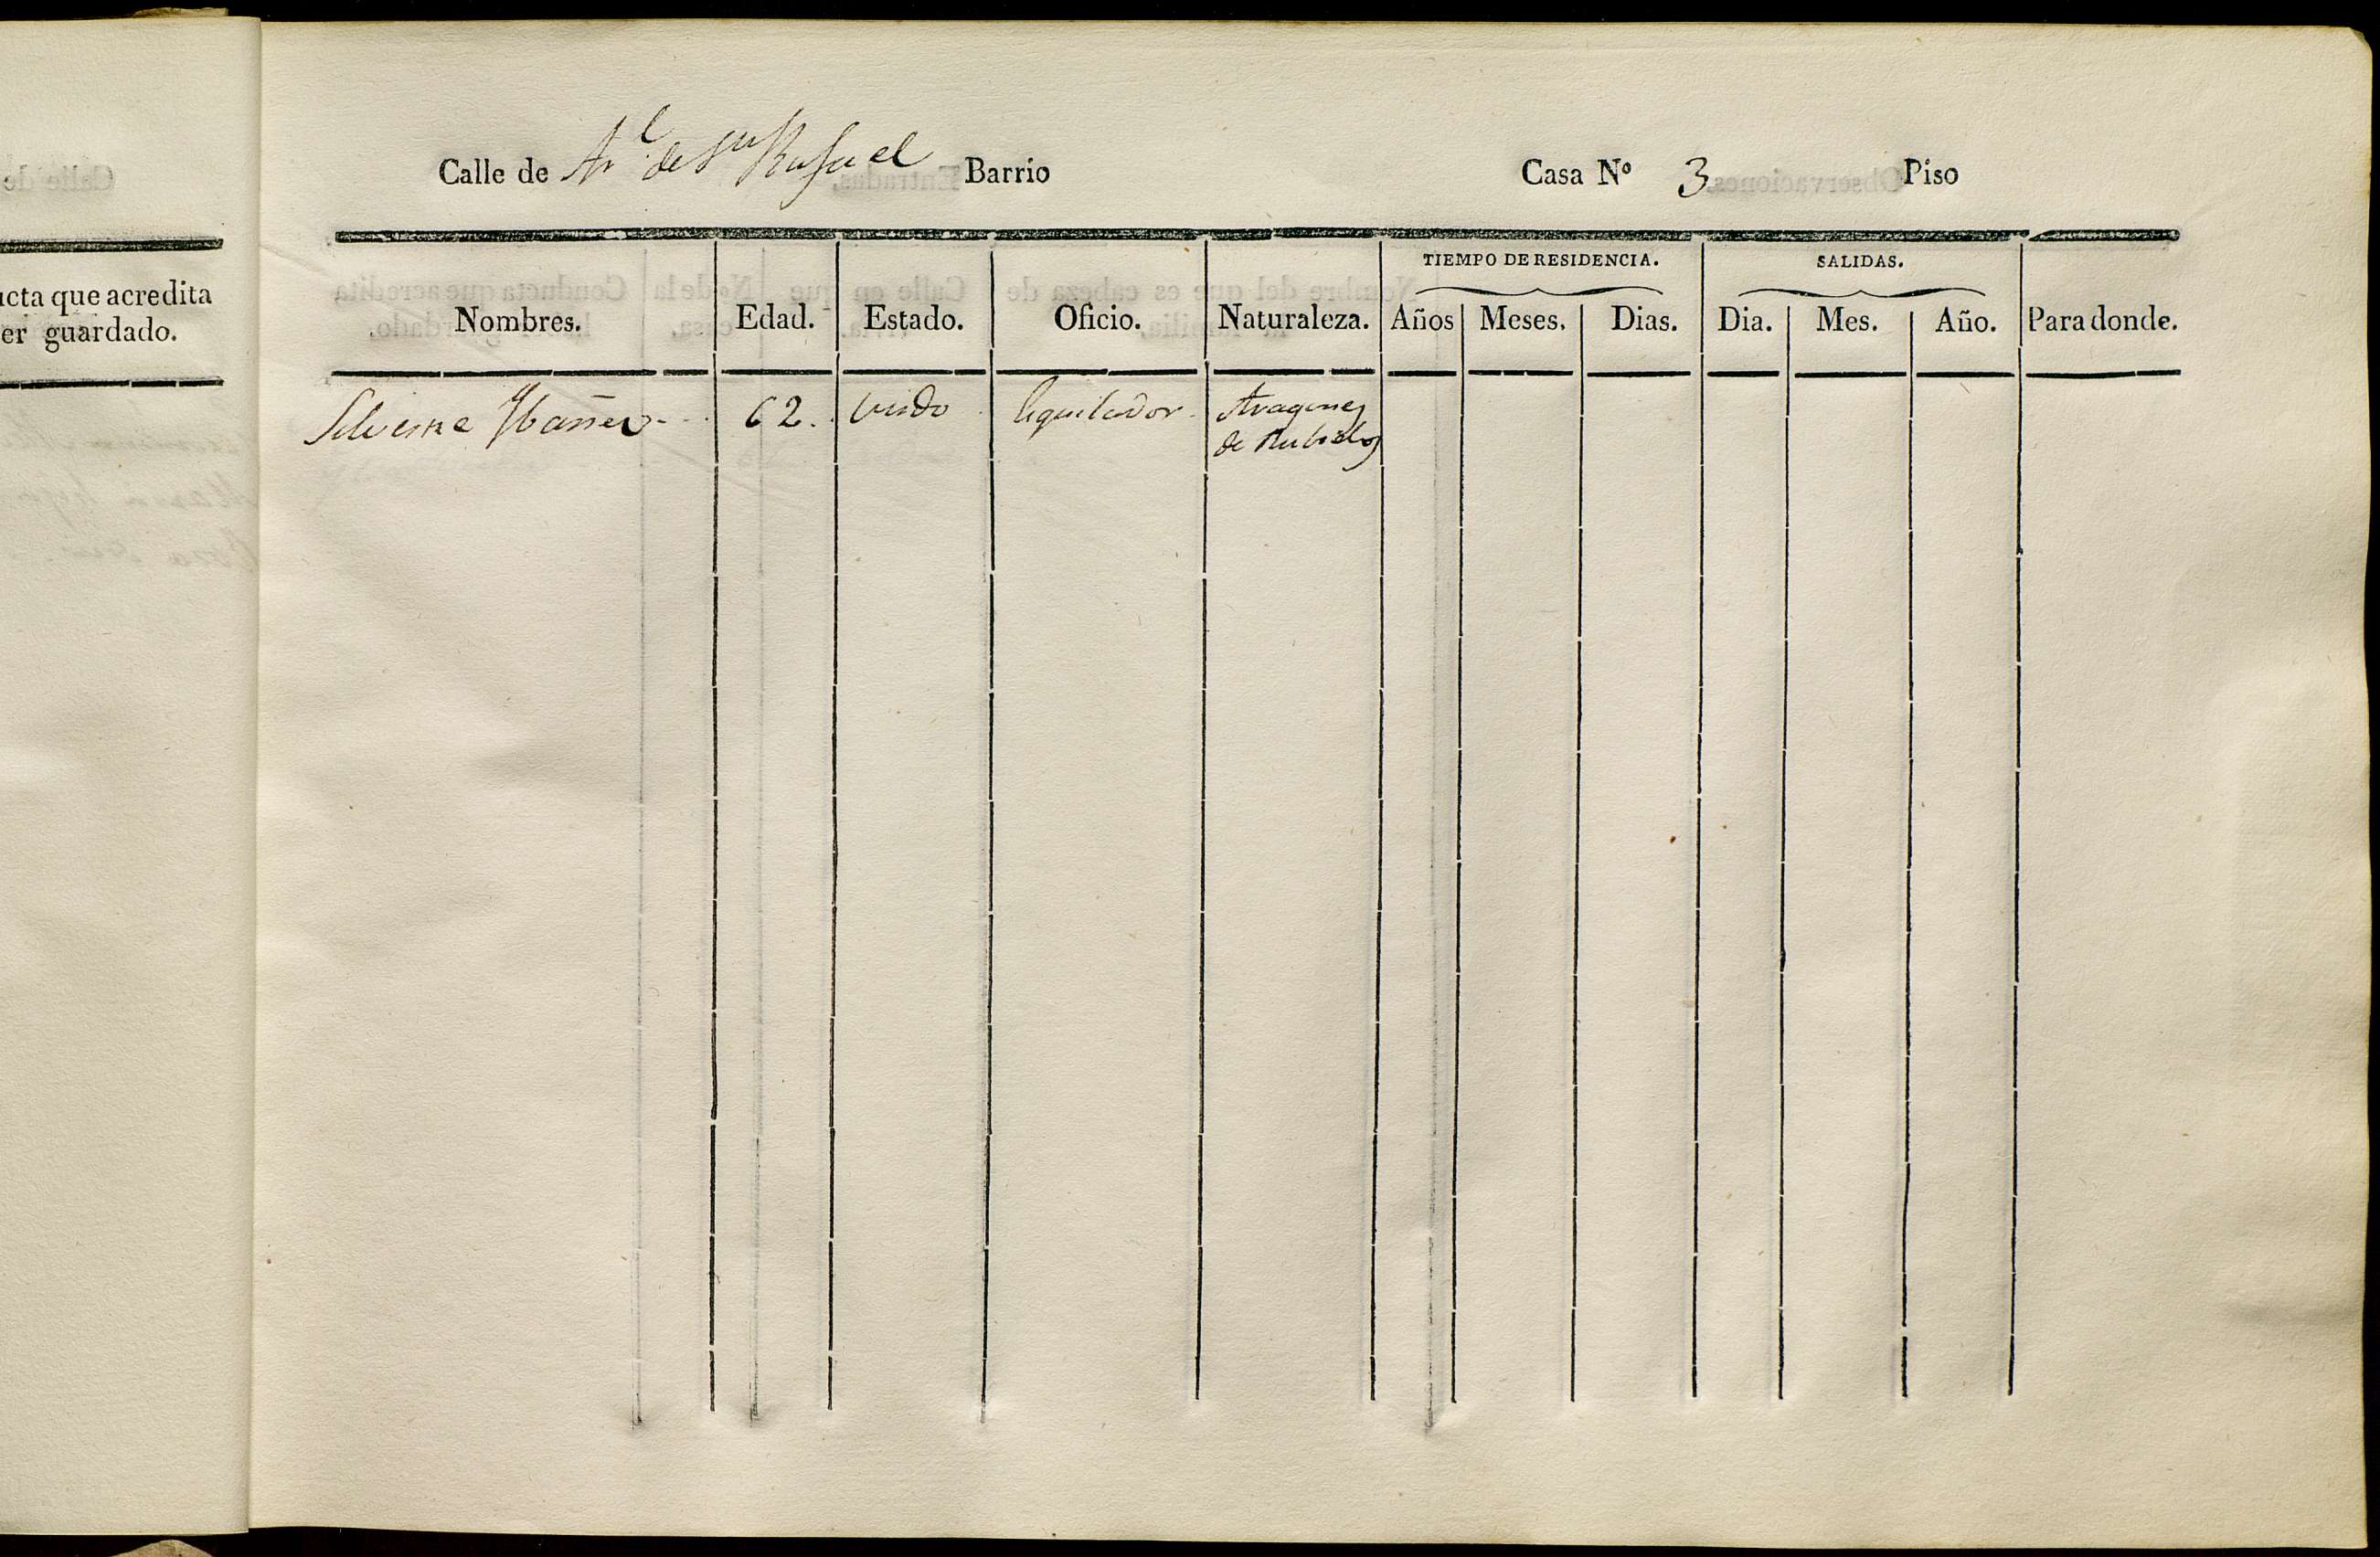 Calle de Arl. de Sn Rafael Barrio Casa Nº 3 Piso
acredita
guardado.
cta que
er
TIEMPO DE RESIDENCIA. SALIDAS.
Nombres. Edad. Estado. Oficio. Naturaleza. Años Meses. Dias. Dia. Mes. Año. Para donde.
Silvestre Ybañez 62. viudo Esquilador Aragones
de Rubielos